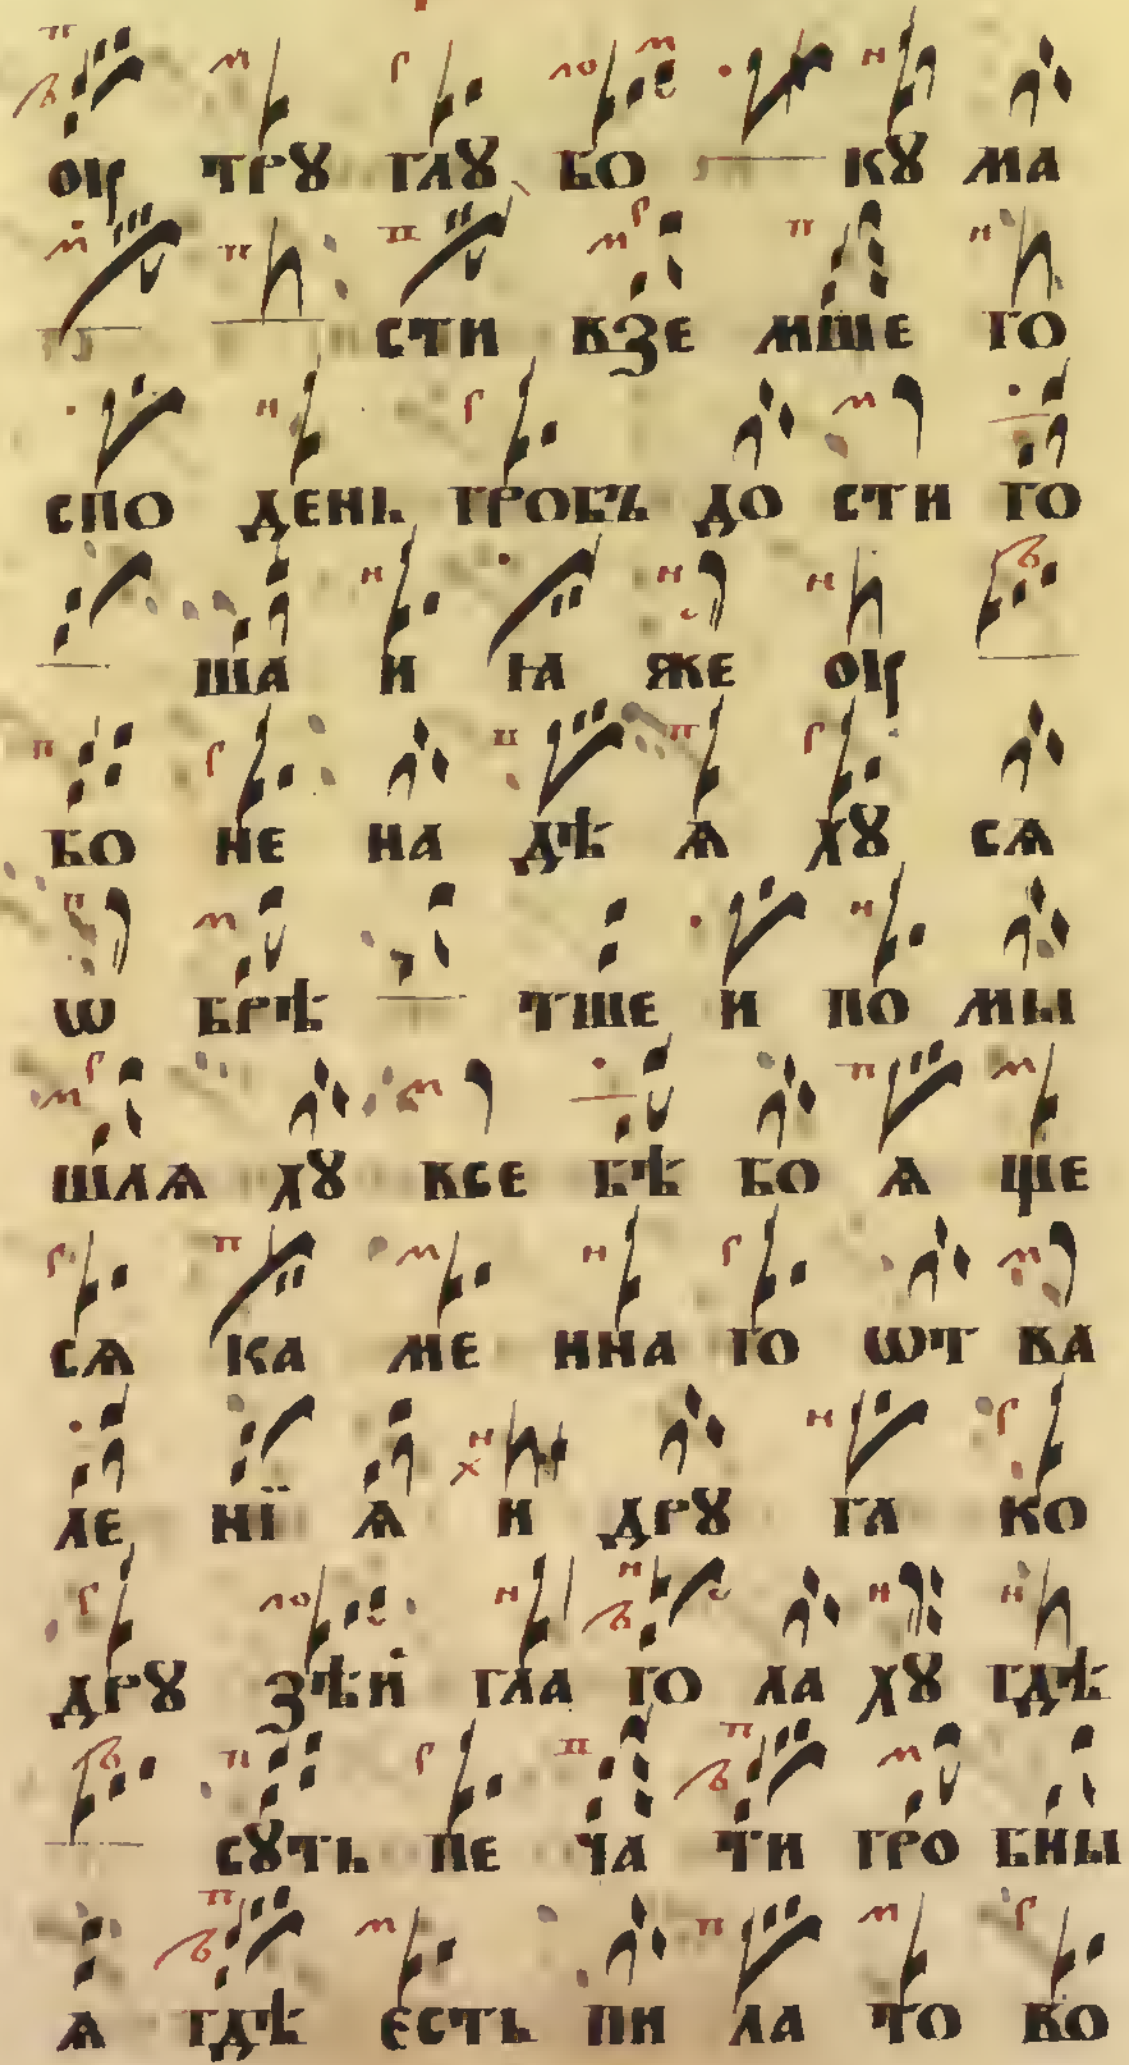 оу трꙋ глꙋ бо кꙋ ма
сти взе мше го
спо день гробъ до сти го
ша и ꙗ же оу
бо не на дѣ ѧ хꙋ сѧ
ѡ брѣ тше и по мы
шлѧ хꙋ ксе бѣ бо ѧ ще
сѧ ка ме нна го ѡт ва
ле нї ѧ и дрꙋ га ко
дрꙋ зѣй гла го ла хꙋ гдѣ
сꙋть пе ча ти гро бны
ѧ гдѣ есть пи ла то во